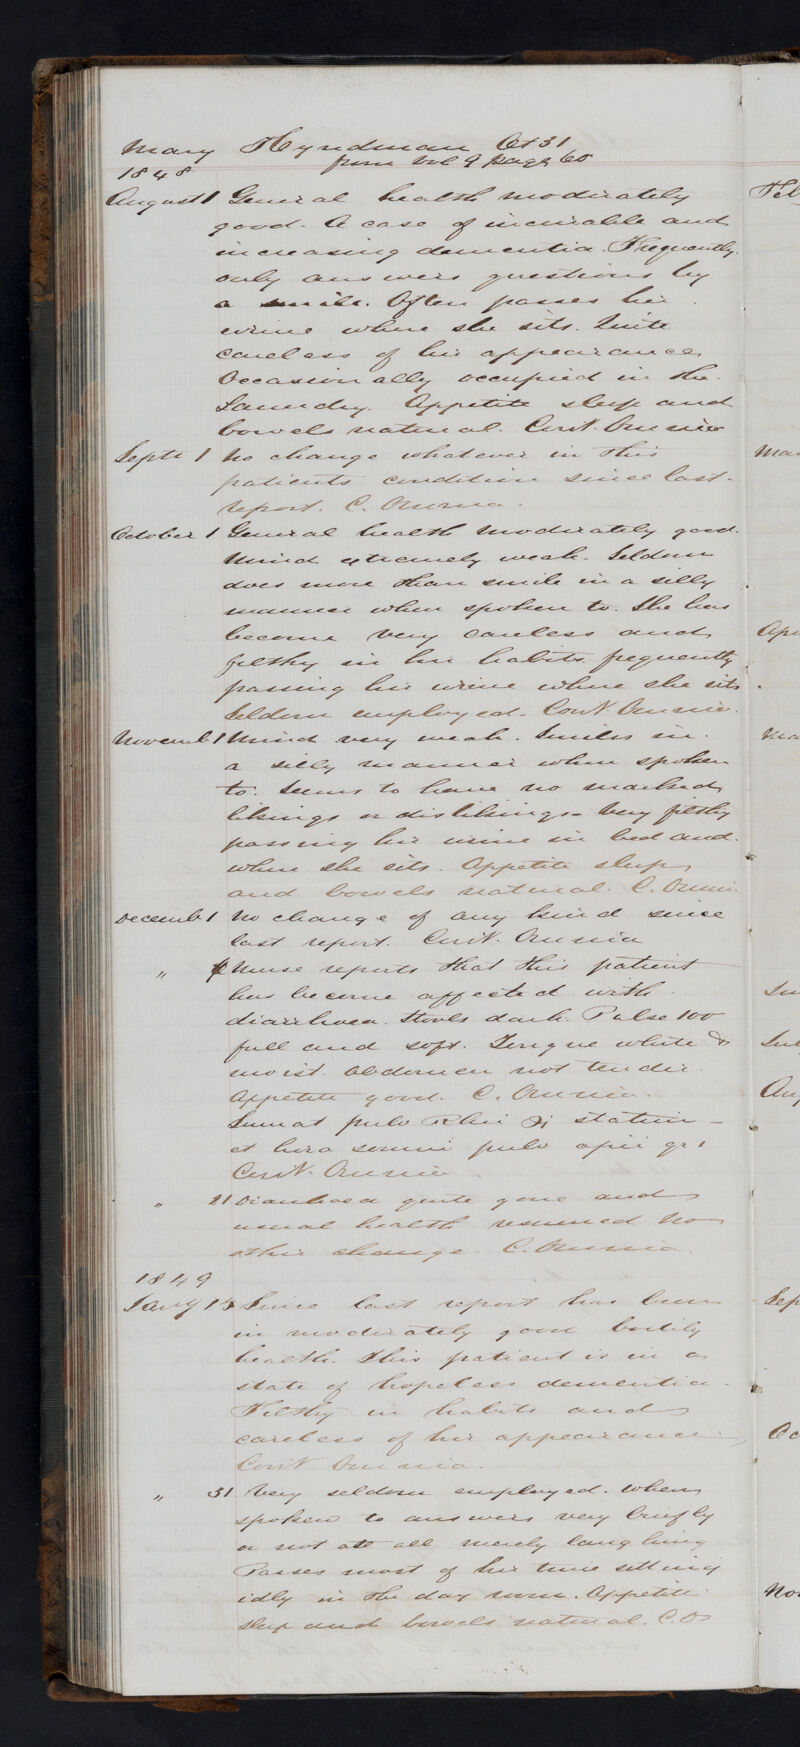 Mary Hyndman Æt 31
from vol 9 page 60
1848
August 1 General health moderately
good. A case of incurable and
increasing dementia. Frequently
only answers questions by
a smile. Often passes her
urine where she sits. Quite
careless of her appearance
Occasionally occupied in the
Laundry. Appetite sleep and
bowels natural. Cont. Omnia
Septr 1 No change whatever in this
patients condition since last
report. C. Omnia.
October 1 General health moderately good.
Mind extremely weak. Seldom
does more than smile in a silly
manner when spoken to. She has
become very careless and
filthy in her habits frequently
passing her urine where she sits.
Seldom employed. Cont. Omnia.
Novemb 1 Mind very weak. Smiles in
a silly manner when spoken
to. Seems to have no marked
likings or dislikings. Very filthy
passing her urine in bed and
where she sits. Appetite sleep
and bowels natural. C. Omnia.
Decemb 1 No change of any kind since
last report. Cont. Omnia
" Nurse reports that this patient
has become affected with
diarrhoea. Stools dark. Pulse 100
full and soft. Tongue white &
moist. Abdomen not tender.
Appetite good. C. Omnia.
Sumat pulv Rhei ʒj statim
et hora somni pulv opii gr 1
Cont. Omnia.
" 21 Diarrhoea quite gone and
usual health resumed no
other change. C. Omnia.
1849
Jany 13 Since last report has been
in moderately good bodily
health. This patient is in a
state of hopeless dementia.
Filthy in habits and
careless of her appearance.
Cont. Omnia.
" 31 Very seldom employed. When
spoken to answers very briefly
or not at all merely laughing
Passes most of her time sitting
idly in the day room. Appetite
sleep and bowels natural. C. O